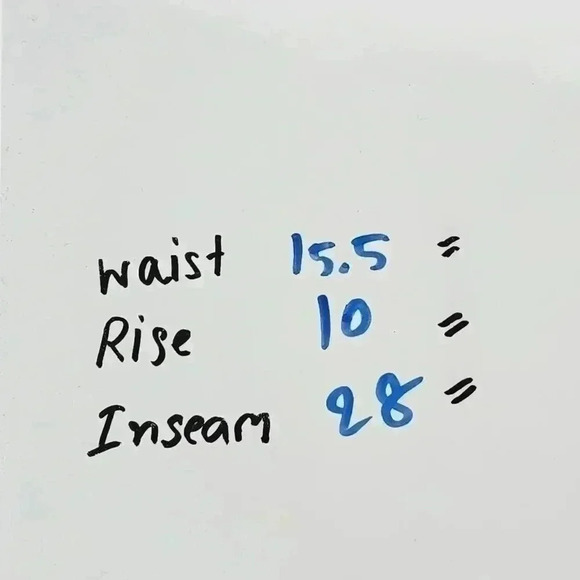 waist 15.5 "
Rise 10 "
Inseam 28 "